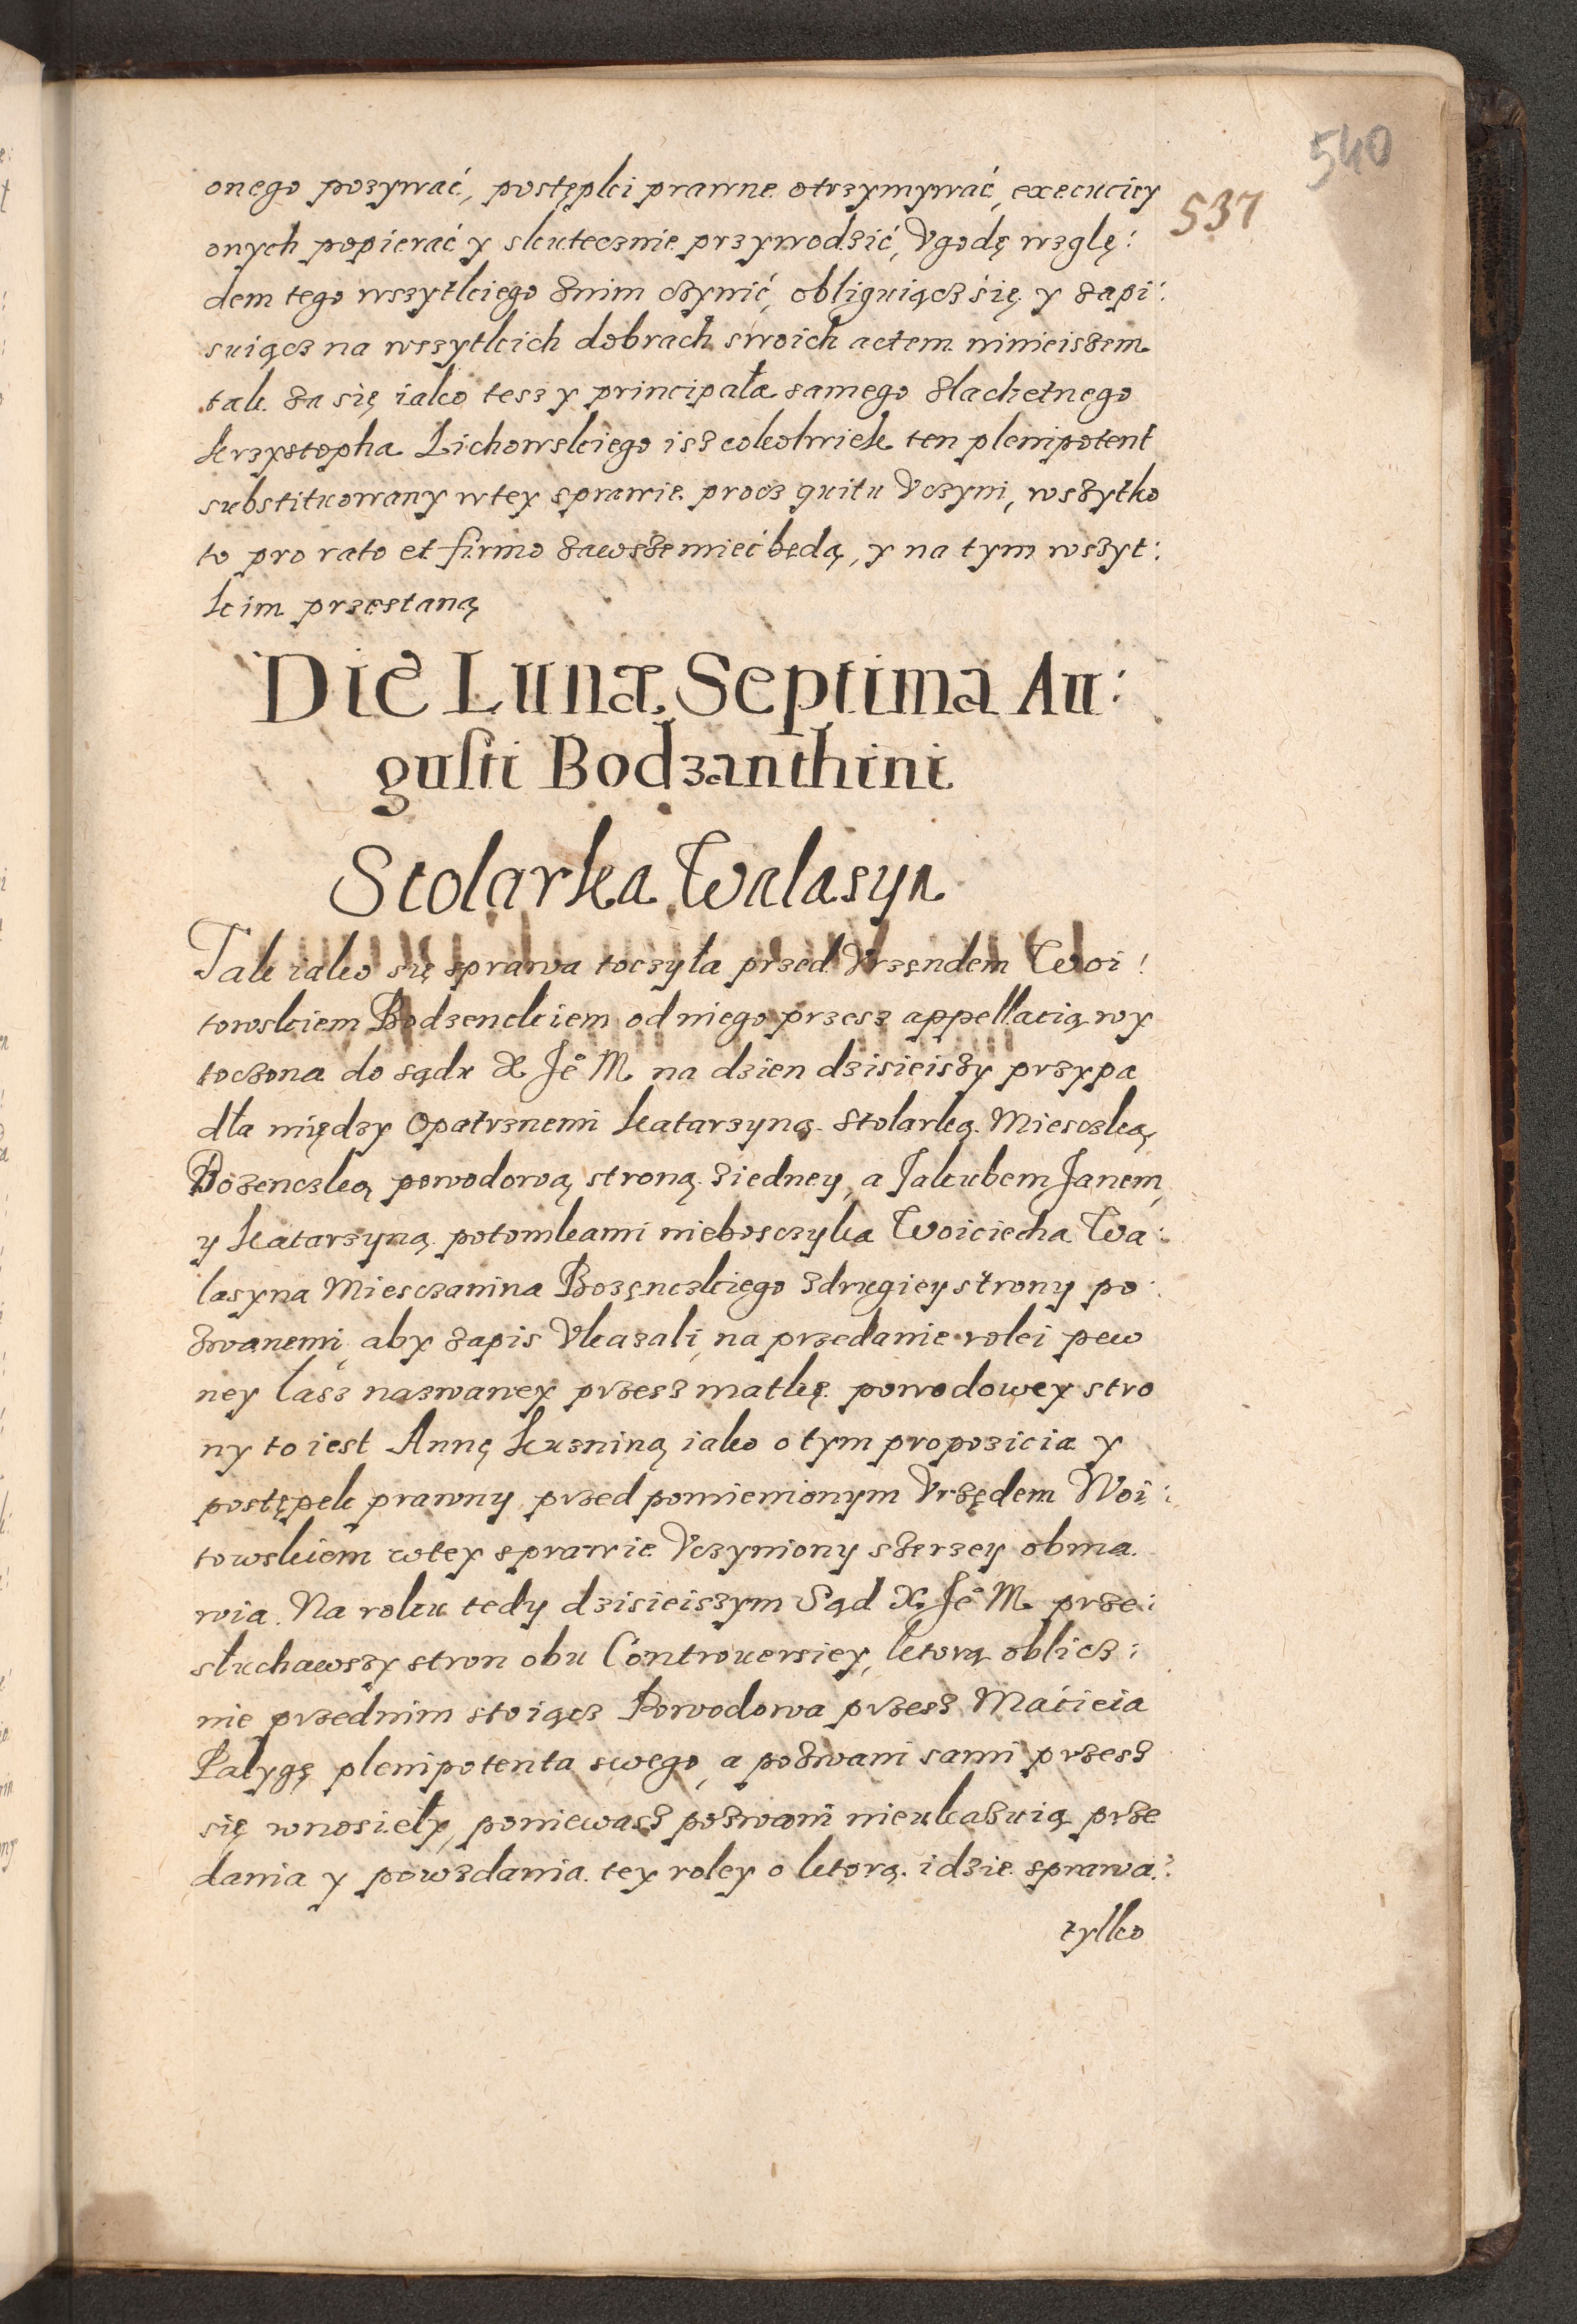 540
537
onego pozywać, postępki prawne otrzymywać, execuciey
onych popierać y skutecznie przywodzić, Vgodę wzglę:
dem tego wszytkiego znim czynić, obliguiącz się y zapi:
suiącz na wszytkich dobrach swoich actem ninieiszem
tak za się iako tesz y principała samego slachetnego
Krzysztopha Lichowskiego isz cokolwiek ten plenipotent
substituowany wtey sprawie procz quitu Vczyni, wszytko
to pro rato et firmo zawsze mieć będą, y na tym wszyt:
kim przestaną
Die Lunæ Septima Au:
gusti Bodzanthini
Stolarka Walasyn
Tak iako się sprawa toczyła przed Vrzęndem Woi:
towskiem Bodzenckiem od niego przesz appellacią wy
toczona do sądu X Je͛ M na dzien dzisieiszy przypa
dła między Opatrznemi Katarzyną Stolarką Miesczką
Bozenczką powodową stroną ziedney, a Jakubem Janem,
y Katarzyną potomkami nieboszczyka Woiciecha Wa:
lasyna Miesczanina Bozęnczkiego zdrugiey strony po:
zwanemi, aby zapis Vkazali, na przedanie rolei pew
ney Lasz nazwaney przesz matkę powodowey stro
ny to iest Annę Kuzniną iako o tym propozicia y
postępek prawny przed pomienionym Vrzędem Woi:
towskiem wtey sprawie Vczyniony szerzey obma
wia. Na roku tedy dzisieiszym Sąd X. Je͛ M przei
słuchawszy stron obu Controuersiey, ktorą oblicz:
nie przednim stoiącz Powodowa przesz Macieia
Pałygę plenipotenta swego, a pozwani sami przesz
się wnosiely, poniewasz pozwani nieukazuią prze
dania y powzdania tey roley o ktorą idzie sprawa:
tylko